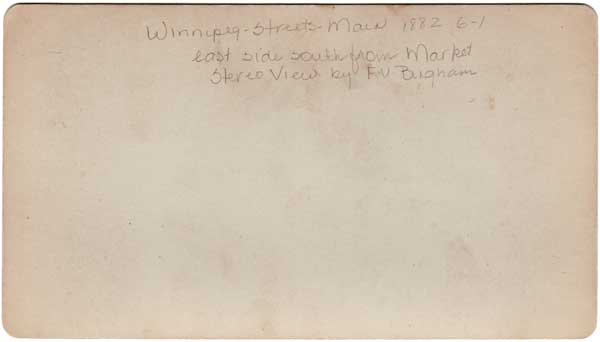 Winnipeg-Streets-Main 1882 6-1
east side south from Market
Stereo View by F.V. Bingham